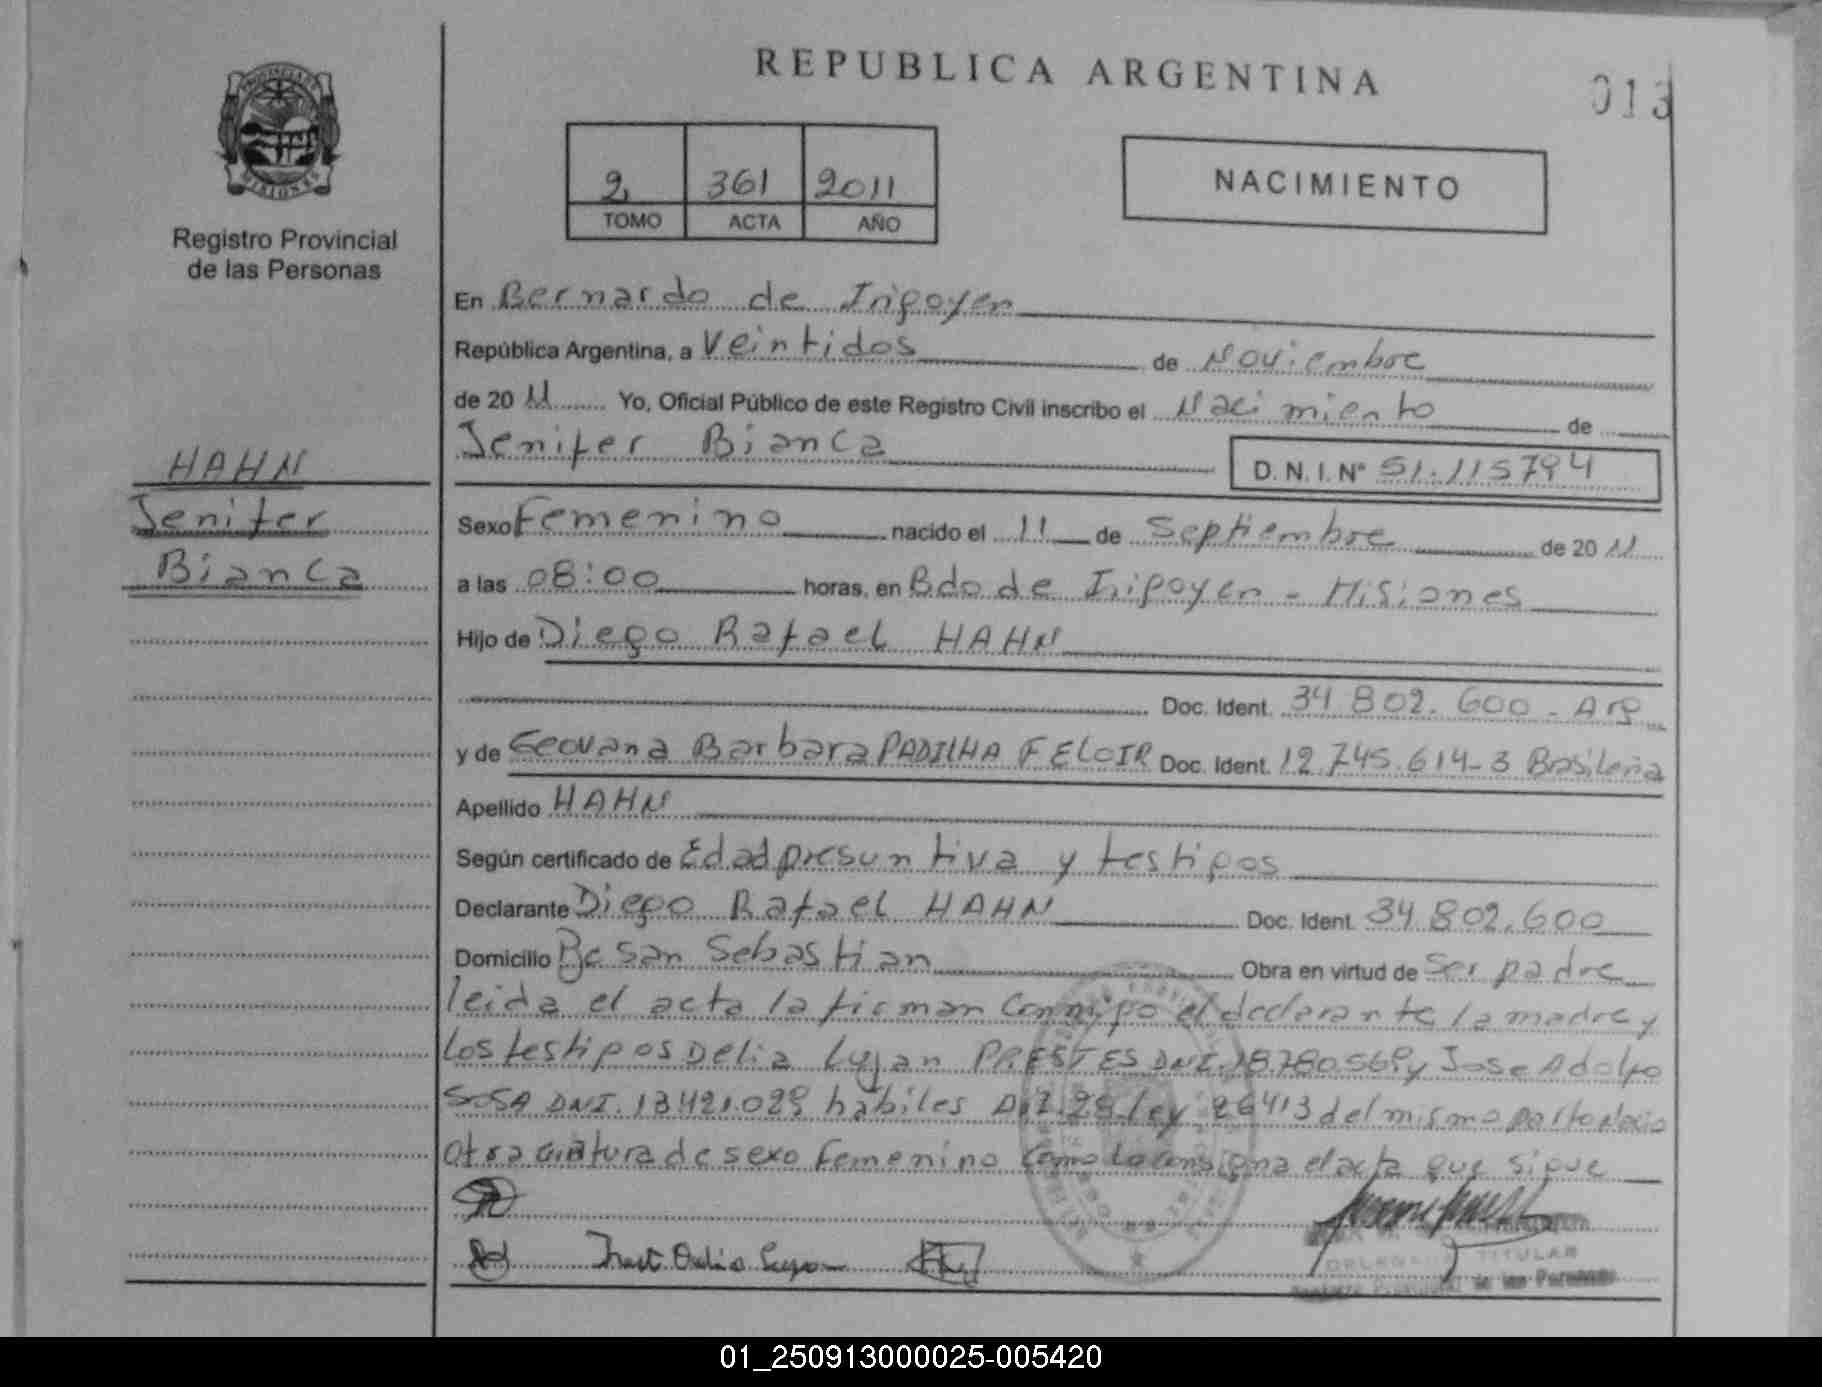 REPUBLICA ARGENTINA
013
PROVINCIA DE MISIONES
Registro Provincial
de las Personas
2 361 2011
TOMO ACTA AÑO
NACIMIENTO
En Bernardo de Irigoyen
República Argentina, a Veintidos de Noviembre
de 20 11 Yo, Oficial Público de este Registro Civil inscribo el Nacimiento de
Jenifer Bianca D. N. I. Nº 51.115794
HAHN
Jenifer
Bianca
Sexo Femenino nacido el 11 de Septiembre de 20 11
a las 08:00 horas, en Bdo de Irigoyen - Misiones
Hijo de Diego Rafael HAHN
Doc. Ident. 34 802.600 - Arg
y de Geovana Barbara PADILHA FELOIR Doc. Ident. 12.745.614-3 Brasileña
Apellido HAHN
Según certificado de Edad presuntiva y testigos
Declarante Diego Rafael HAHN Doc. Ident. 34.802.600
Domicilio Pje San Sebastian Obra en virtud de Ser padre
leida el acta la firman conmigo el declarante la madre y
los testigos Delia Lujan PRESTES DNI. 18.780.569 y Jose Adolfo
SOSA DNI. 13421.029 habiles Art. 28 ley 26413 del mismo parto Nacio
otra criatura de sexo femenino como lo consigna el acta que sigue
DELEGADA TITULAR
Registro Provincial de las Personas
01_250913000025-005420